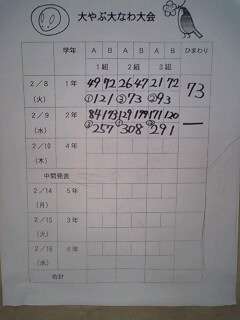 大やぶ大なわ大会
学年 A B A B A B ひまわり
1組 2組 3組
2/8 1年 49 72 26 47 21 72 73
(火) ①121 ③73 ②93
2/9 2年 84 173 129 179 171 120 —
(水) ③257 ①308 ②291
2/10 4年
(木)
中間発表
2/14 5年
(月)
2/15 3年
(火)
2/16 6年
(水)
合計